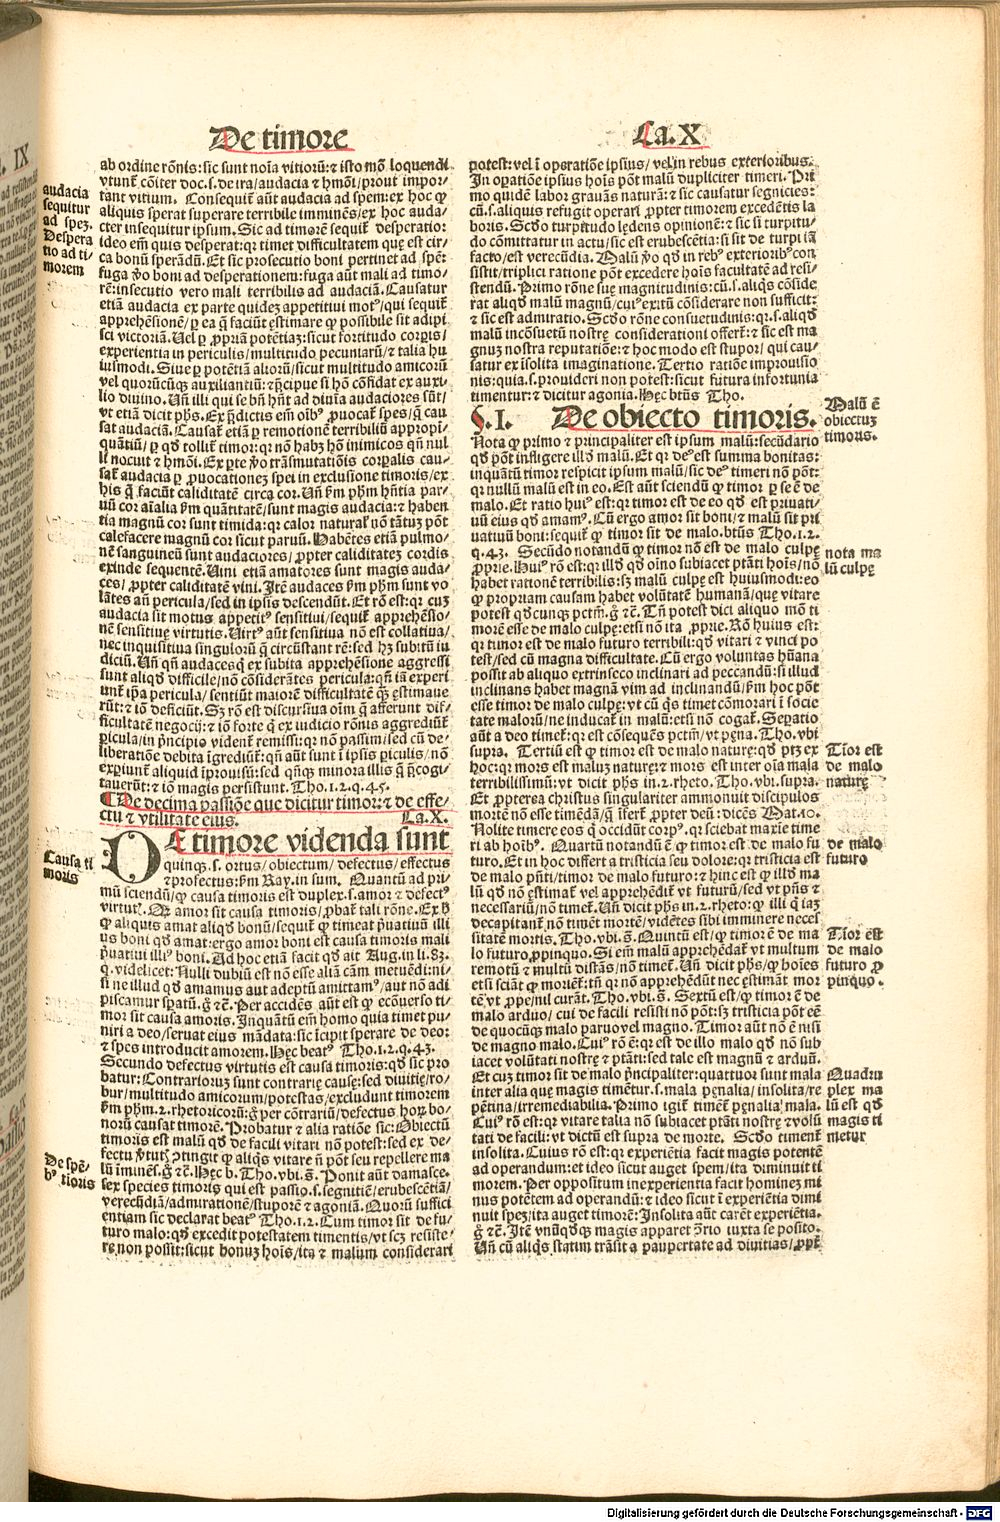 De timore
Ca. X
audacia
sequitur
ad spez.
Despera
tio ad ti-
morem
ab ordine rōnis: sic sunt noīa vitiorū: ⁊ isto mō loquendi
vtunt̄ cōiter doc. s. de ira/audacia ⁊ hmōi/prout impor-
tant vitium. Consequit̄ aūt audacia ad spem: ex hoc ꝙ
aliquis sperat superare terribile imminēs/ex hoc auda-
cter insequitur ipsum. Sic ad timorē sequit̄ desperatio:
ideo em̄ quis desperat: qr timet difficultatem que est cir-
ca bonū sperādū. Et sic prosecutio boni pertinet ad spē:
fuga ꝟo boni ad desperationem: fuga aūt mali ad timo-
rē: insecutio vero mali terribilis ad audaciā. Causatur
etiā audacia ex parte quidez appetitiui motꝰ/qui sequit̄
apprehēsionē/ꝑ ea q̄ faciūt estimare ꝙ possibile sit adipi
sci victoriā. Uel ꝑ ꝓpriā potētiaz: sicut fortitudo corpꝛis/
experientia in periculis/multitudo pecuniarū/⁊ talia hu
iusmodi. Siue ꝑ potētiā aliorū/sicut multitudo amicorū
vel quorūcūqꝫ auxiliantiū: ⁊p̄cipue si hō cōfidat ex auxi-
lio diuino. Un̄ illi qui se bn̄ hn̄t ad diuīa audaciores sūt/
vt etiā dicit phs. Ex p̄dictis em̄ oībꝰ ꝓuocat̄ spes/q̄ cau
sat audaciā. Causat̄ etiā ꝑ remotionē terribiliū appropi-
quātiū/ꝑ qd̄ tollit̄ timor: qr nō habꝫ hō inimicos qn̄ nul
li nocuit ⁊ hmōi. Ex ꝑte ꝟo trāsmutatiōis corꝑalis cau-
sat̄ audacia ꝑ ꝓuocationez spei in exclusione timoris/ex
his q̄ faciūt caliditatē circa cor. Un̄ ẜm phm hn̄tia par-
uū cor aīalia ẜm quātitatē/sunt magis audacia: ⁊ haben
tia magnū cor sunt timida: qr calor natural' nō tātuꝫ pōt
calefacere magnū cor sicut paruū. Habētes etiā pulmo-
nē sanguineū sunt audaciores/ꝓpter caliditatez cordis
exinde sequentē. Uini etiā amatores sunt magis auda-
ces/ꝓpter caliditatē vini. Itē audaces ẜm phm sunt vo
lātes an̄ pericula/sed in ipsis descendūt. Et rō est: qr cuꝫ
audacia sit motus appetitꝰ sensitiui/sequit̄ apprehēsio-
nē sensitiue virtutis. Uirtꝰ aūt sensitiua nō est collatiua/
nec inquisitiua singulorū q̄ circūstant rē: sed hꝫ subitū iu
diciū. Un̄ qn̄ audacesqꝫ ex subita apprehēsione aggressi
sunt aliqd̄ difficile/nō cōsiderātes pericula: qn̄ iā experi
unt̄ ip̄a pericula/sentiūt maiorē difficultatē qꝫ estimaue
rūt: ⁊ iō deficiūt. Sꝫ rō est discursiua oīm q̄ afferunt dif-
ficultatē negocij: ⁊ iō forte q̄ ex iudicio rōnis aggrediūt̄
ꝑicula/in p̄ncipio vident̄ remissi: qr nō passim/sed cū de-
liberatiōe debita īgrediūt̄: qn̄ aūt sunt ī ipsis ꝑiculis/nō
experiunt̄ aliquid īprouisū: sed qn̄qꝫ minora illis q̄ p̄cogi-
tauerūt: ⁊ iō magis persistunt. Tho. 1. 2. q. 45.
De decima passiōe que dicitur timor: ⁊ de effe-
ctu ⁊ vtilitate eius. Ca. X.
Causa ti
moris
DE timore videnda sunt
quinqꝫ. s. ortus/obiectum/defectus/effectus
⁊ profectus: ẜm Ray. in sum. Quantū ad pri-
mū sciendū/ꝙ causa timoris est duplex. s. amor ⁊ defectꝰ
virtut̄. Qꝫ amor sit causa timoris/ꝓbat̄ tali rōne. Ex ħ
ꝙ aliquis amat aliqd̄ bonū/sequit̄ ꝙ timeat p̄uatiuū illi
us boni qd̄ amat: ergo amor boni est causa timoris mali
p̄uatiui illiꝰ boni. Ad hoc etiā facit qd̄ ait Aug. in li. 83.
q. videlicet: Nulli dubiū est nō esse aliā cām metuēdi: ni-
si ne illud qd̄ amamus aut adeptū amittamꝰ/aut nō adi
piscamur sꝑatū. ḡ ⁊c̄. Per accidēs aūt est ꝙ ecōuerso ti-
mor sit causa amoris. Inquātū em̄ homo quia timet pu-
niri a deo/seruat eius mādata: sic īcipit sperare de deo:
⁊ spes introducit amorem. Hec beatꝰ Tho. 1. 2. q. 43.
Secundo defectus virtutis est causa timoris: qd̄ sic pro
batur: Contrarioruꝫ sunt contrarie cause: sed diuitie/ro-
bur/multitudo amicorum/potestas/excludunt timorem
ẜm phm. 2. rhetoricorū: ḡ per cōtrariū/defectus hoꝝ bo-
norū causat timorē. Probatur ⁊ alia ratiōe sic: Obiectū
timoris est malū qd̄ de facili vitari nō potest: sed ex de-
fectu ꝟtut̄ ꝯtingit ꝙ aliqs vitare n̄ pōt seu repellere ma
lū īminēs. ḡ ⁊c̄. Hec b. Tho. vbi. s̄. Ponit aūt damasce.
De spē-
bꝰ tioris
sex species timoris qui est passio. s. segnitiē/erubescētiā/
verecūdiā/admirationē/stuporē ⁊ agoniā. Quorū suffici
entiam sic declarat beatꝰ Tho. 1. 2. Cum timor sit de fu-
turo malo: qd̄ excedit potestatem timentis/vt scꝫ resiste-
re non possit: sicut bonuꝫ hoīs/ita ⁊ malum considerari
potest: vel ī operatiōe ipsius/vel in rebus exterioribus.
In oꝑatiōe ipsius hoīs pōt malū dupliciter timeri. Pri
mo quidē labor grauās naturā: ⁊ sic causatur segnicies:
cū. s. aliquis refugit operari ꝓpter timorem excedētis la
boris. Scd̄o turpitudo ledens opinionē: ⁊ sic si turpitu-
do cōmittatur in actu/sic est erubescētia: si sit de turpi iā
facto/est verecūdia. Malū ꝟo qd̄ in rebꝰ exterioribꝰ con
sistit/triplici ratione pōt excedere hoīs facultatē ad resi-
stendū. Primo rōne sue magnitudinis: cū. s. aliqs cōside
rat aliqd̄ malū magnū/cuiꝰ exitū cōsiderare non sufficit:
⁊ sic est admiratio. Scd̄o rōne consuetudinis: qr. s. aliqd̄
malū incōsuetū nostre considerationi offert̄: ⁊ sic est ma
gnuꝫ nostra reputatiōe: ⁊ hoc modo est stupor/qui cau-
satur ex īsolita imaginatione. Tertio ratiōe improuisio
nis: quia. s. prouideri non potest: sicut futura infortunia
timentur: ⁊ dicitur agonia. Hec btūs Tho.
§. I. De obiecto timoris.
Malū ē
obiectuꝫ
timoris.
Nota ꝙ primo ⁊ principaliter est ipsum malū: secūdario
qd̄ pōt infligere illd̄ malū. Et qr deꝰ est summa bonitas:
inquātū timor respicit ipsum malū/sic deꝰ timeri nō pōt:
qr nullū malū est in eo. Est aūt sciendū ꝙ timor ꝑ se ē de
malo. Et ratio huiꝰ est: qr timor est de eo qd̄ est priuati-
uū eius qd̄ amamꝰ. Cū ergo amor sit boni/⁊ malū sit pri
uatiuū boni: sequit̄ ꝙ timor sit de malo. btūs Tho. 1. 2.
q. 43. Secūdo notandū ꝙ timor nō est de malo culpe
nota ma
lū culpe
ꝓprie. Huiꝰ rō est: qr illd̄ qd̄ oīno subiacet ptāti hoīs/nō
habet rationē terribilis: sꝫ malū culpe est huiusmodi: eo
ꝙ propriam causam habet volūtatē humanā/que vitare
potest qd̄cunqꝫ pctm̄. ḡ ⁊c̄. Tn̄ potest dici aliquo mō ti
morē esse de malo culpe: etsi nō ita ꝓprie. Rō huius est:
qr timor est de malo futuro terribili: qd̄ vitari ⁊ vinci po
test/sed cū magna difficultate. Cū ergo voluntas hūana
possit ab aliquo extrinseco inclinari ad peccandū: si illud
inclinans habet magnā vim ad inclinandū/ẜm hoc pōt
esse timor de malo culpe: vt cū qs timet cōmorari ī socie
tate malorū/ne inducat̄ in malū: etsi nō cogat̄. Seꝑatio
aūt a deo timet̄: qr est cōsequēs pctm̄/vt pena. Tho. vbi
supra. Tertiū est ꝙ timor est de malo nature: qd̄ ptꝫ ex
Tior est
de malo
nature
hoc: qr mors est maluꝫ nature: ⁊ mors est inter oīa mala
terribilissimū: vt dicit phs in. 2. rheto. Tho. vbi. supra.
Et ꝓpterea christus singulariter ammonuit discipulos
mortē nō esse timēdā/q̄ īfert̄ ꝓpter deū: dicēs Mat. 10.
Nolite timere eos q̄ occidūt corpꝰ. qr sciebat maxīe time
ri ab hoībꝰ. Quartū notandū ē ꝙ timor est de malo fu
de malo
futuro
turo. Et in hoc differt a tristicia seu dolore: qr tristicia est
de malo pn̄ti/timor de malo futuro: ⁊ hinc est ꝙ illd̄ ma
lū qd̄ nō estimat̄ vel apprehēdit̄ vt futurū/sed vt pn̄s ⁊
necessariū/nō timet̄. Un̄ dicit phs in. 2. rheto: ꝙ illi q̄ iaꝫ
decapitant̄ nō timēt mortē/vidētes sibi imminere neces
sitatē mortis. Tho. vbi. s̄. Quintū est/ꝙ timor ē de ma
Tior est
de malo
futuro ꝓ
pinquo.
lo futuro ꝓpinquo. Si em̄ malū apprehēdat̄ vt multum
remotū ⁊ multū distās/nō timet̄. Un̄ dicit phs/ꝙ hoīes
etsi sciāt ꝙ moriēt̄: tn̄ qr nō apprehēdūt nec estimāt mor
tē vt ꝓpe/nil curāt. Tho. vbi. s̄. Sextū est/ꝙ timor ē de
malo arduo/cui de facili resisti nō pōt: sꝫ tristicia pōt eē
de quocūqꝫ malo paruo vel magno. Timor aūt nō ē nisi
de magno malo. Cuiꝰ rō ē: qr est de illo malo qd̄ nō sub
iacet volūtati nostre ⁊ ptāti: sed tale est magnū ⁊ arduū.
Et cuꝫ timor sit de malo p̄ncipaliter: quattuor sunt mala
Quadru
plex ma
lū est qd̄
magis ti
metur
inter alia que magis timētur. s. mala penalia/insolita/re
pētina/irremediabilia. Primo igit̄ timēt̄ penalia mala.
Cuiꝰ rō est: qr vitare talia nō subiacet ptāti nostre ⁊ volū
tati de facili: vt dictū est supra de morte. Scd̄o timent̄
insolita. Cuius rō est: qr experiētia facit magis potentē
ad operandum: et ideo sicut auget spem/ita diminuit ti
morem. Per oppositum inexperientia facit hominez mi
nus potētem ad operandū: ⁊ ideo sicut ī experiētia dimi
nuit spez/ita auget timorē: Insolita aūt carēt experiētia.
ḡ ⁊c̄. Itē vnūqd̄qꝫ magis apparet ꝯ̄rio iuxta se posito.
Un̄ cū aliqs statim trāsit a paupertate ad diuitias/ꝓpt̄
Digitalisierung gefördert durch die Deutsche Forschungsgemeinschaft - DFG